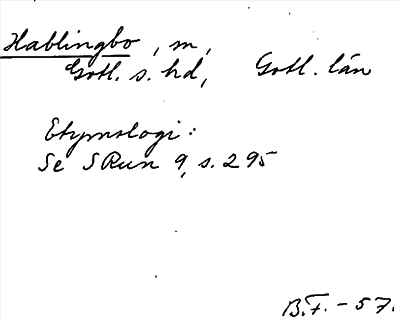 Hablingbo, m,
Gotl. s. hd, Gotl. län
Etymologi:
Se SRun 9, s. 295
B.F. - 57.